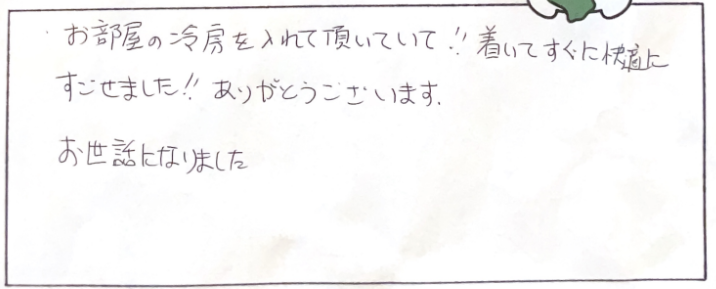 お部屋の冷房を入れて頂いていて!! 着いてすぐに快適に
すごせました!! ありがとうございます.
お世話になりました